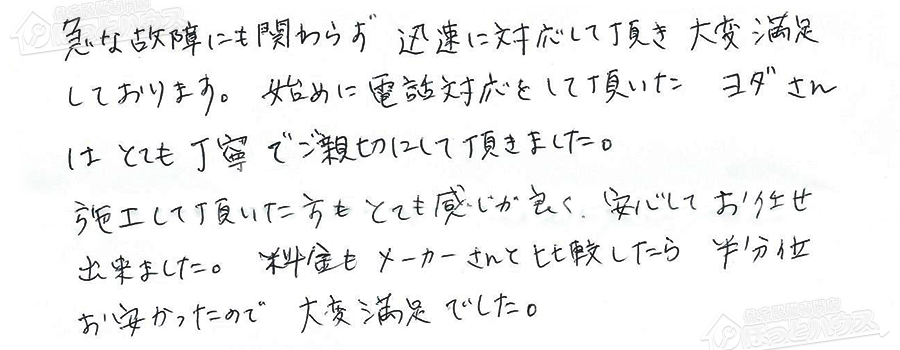 急な故障にも関わらず 迅速に対応して頂き 大変満足
しております。 始めに電話対応をして頂いた ヨダさん
は とても 丁寧 でご親切にして頂きました。
施工して頂いた方も とても感じが良く、安心して お任せ
出来ました。 料金も メーカーさんと比較したら 半分位
お安かったので 大変満足でした。
ほっとハウス